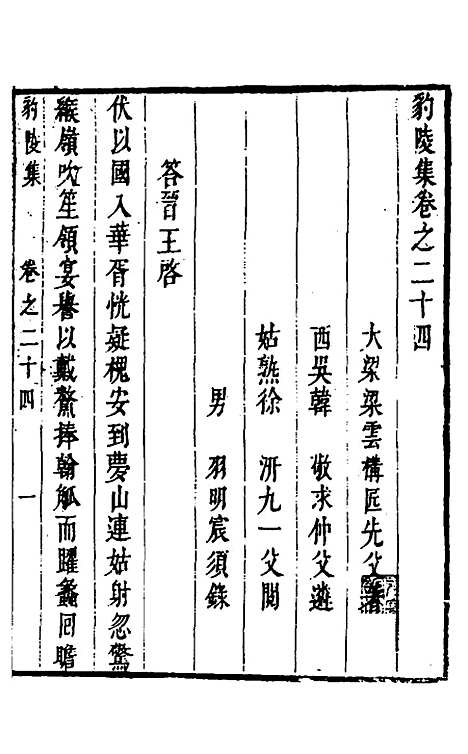 豹陵集卷之二十四
大梁梁雲構匠先父著
西吳韓　敬求仲父選
姑熟徐　沂九一父閱
男　羽明宸須錄
答晉王啓
伏以國入華胥恍疑槐安到夢山連姑射忽驚
緱嶺吹笙領宴譽以戴鰲捧翰觚而躍蠡回瞻
豹陵集　卷之二十四　一